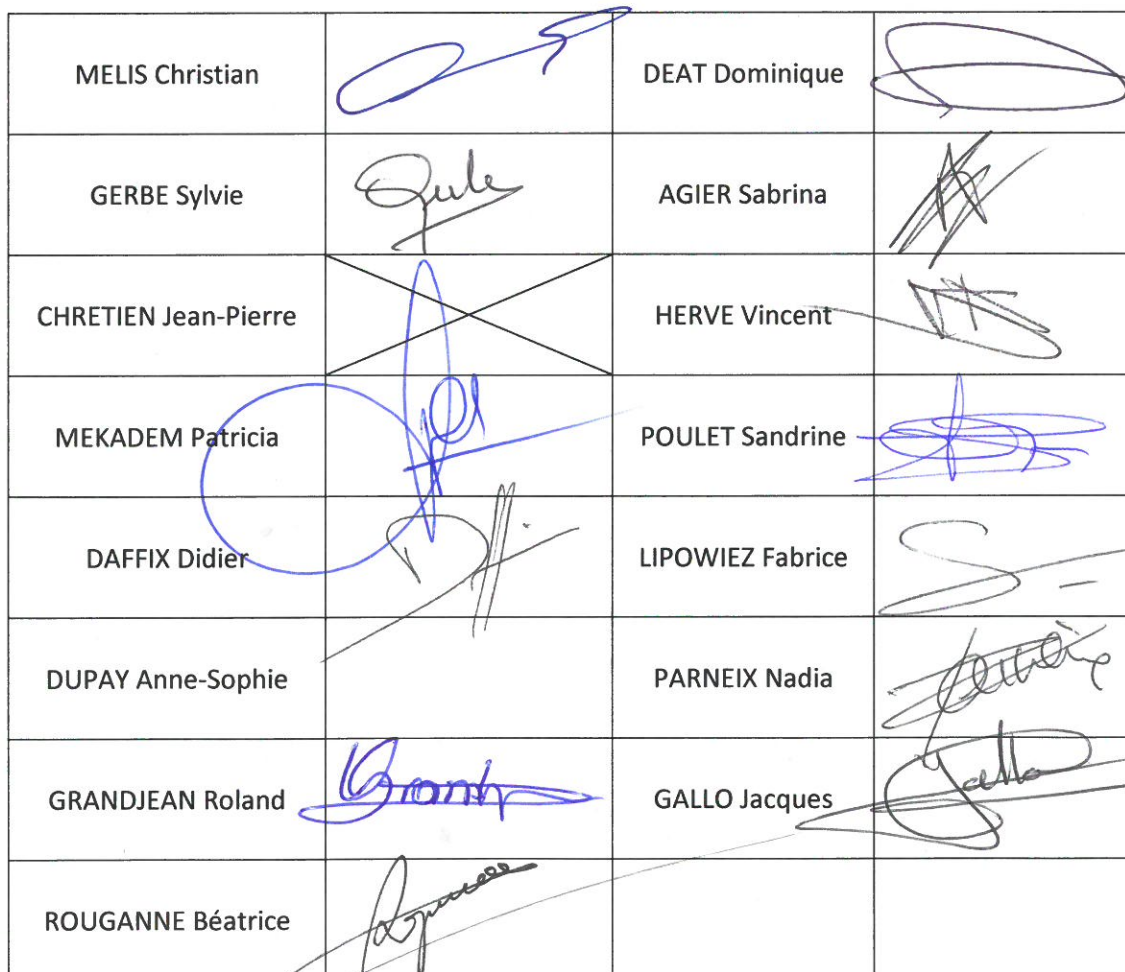 MELIS Christian
DEAT Dominique
GERBE Sylvie
AGIER Sabrina
CHRETIEN Jean-Pierre
HERVE Vincent
MEKADEM Patricia
POULET Sandrine
DAFFIX Didier
LIPOWIEZ Fabrice
DUPAY Anne-Sophie
PARNEIX Nadia
GRANDJEAN Roland
GALLO Jacques
Gallo
ROUGANNE Béatrice